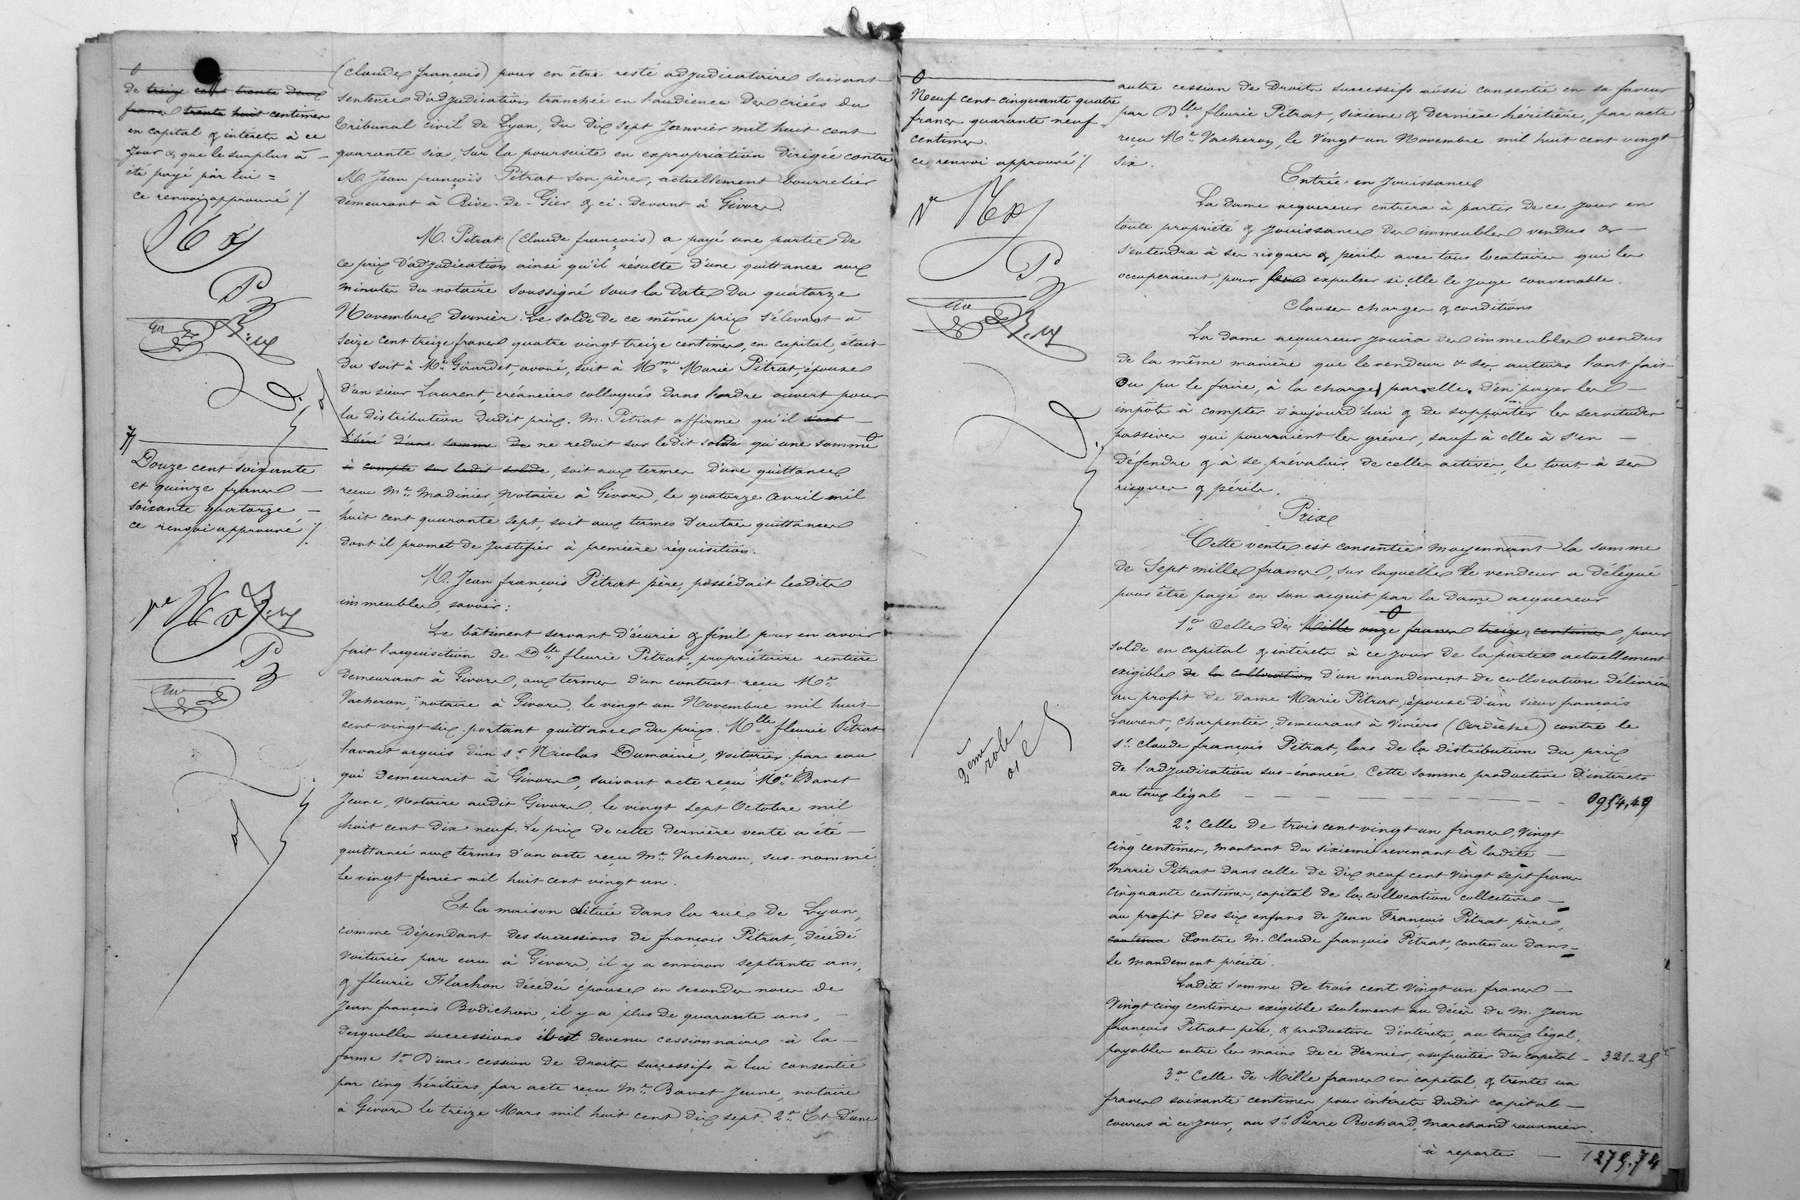 de treize cent trente deux
francs trente huit centimes
en capital & intérêts à ce
jour & que le surplus a
été payé par lui =
ce renvoi approuvé /.
Douze cent soixante
et quinze francs
soixante quatorze
ce renvoi approuvé /.
(Claude françois) pour en être resté adjudicataire suivant
sentence d'adjudication tranchée en l'audience des criées du
tribunal civil de Lyon, du dix sept Janvier mil huit cent
quarante six, sur la poursuite en expropriation dirigée contre
M. Jean françois Pitrat son père, actuellement bourrelier
demeurant à Rive-de-Gier & ci-devant à Givors.
M. Pitrat (Claude françois) a payé une partie de
ce prix d'adjudication ainsi qu'il résulte d'une quittance aux
minutes du notaire soussigné sous la date du quatorze
Novembre dernier. Le solde de ce même prix s'élevant à
seize cent treize francs quatre vingt treize centimes, en capital, était
du soit à Me Girardet, avoué, soit à Mme Marie Pitrat, épouse
d'un sieur Laurent, créanciers colloqués dans l'ordre ouvert pour
la distribution dudit prix. M. Pitrat affirme qu'il s'est
libéré d'une somme de ne redoit sur ledit solde qu'une somme
à compte sur ledit solde, soit aux termes d'une quittance
reçue Me Madinier, Notaire à Givors, le quatorze Avril mil
huit cent quarante sept, soit aux termes d'autres quittances
dont il promet de justifier à première réquisition.
M. Jean françois Pitrat père, possédait lesdits
immeubles savoir:
Le bâtiment servant d'écurie & fenil pour en avoir
fait l'acquisition de Dlle fleurie Pitrat, propriétaire rentière
demeurant à Givors, aux termes d'un contrat reçu Me
Vacheron, notaire à Givors, le vingt un Novembre mil huit
cent vingt six portant quittance du prix. Mlle fleurie Pitrat
l'avait acquis d'un sr Nicolas Dumaine, voiturier par eau
qui demeurait à Givors, suivant acte reçu Me Bavet
Jeune, Notaire audit Givors le vingt sept Octobre mil
huit cent dix neuf. Le prix de cette dernière vente a été
quittancé aux termes d'un acte reçu Me Vacheron, sus-nommé
le vingt février mil huit cent vingt un.
Et la maison située dans la rue de Lyon,
comme dépendant des successions de françois Pitrat, décédé
voiturier par eau à Givors, il y a environ septante ans,
& fleurie Flachon décédée épouse en secondes noces de
Jean françois Bodichon, il y a plus de quarante ans,
desquelles successions il est devenu cessionnaire à la
forme 1° D'une cession de Droits successifs à lui consentie
par cinq héritiers par acte reçu Me Bavet Jeune, notaire
à Givors le treize Mars mil huit cent dix sept. 2° Et D'une
Neuf cent cinquante quatre
francs quarante neuf
centimes.
ce renvoi approuvé /.
2ème role
autre cession de Droits successifs aussi consentie en sa faveur
par Dlle fleurie Pitrat, sixième & dernière héritière, par acte
reçu Me Vacheron, le vingt un Novembre mil huit cent vingt
six.
Entrée en jouissance
La dame acquereur entrera à partir de ce jour en
toute propriété & jouissance des immeubles vendus &
s'entendra à ses risques & périls avec tous locataires qui les
occuperaient, pour les expulser si elle le juge convenable.
Clauses charges & conditions
La dame acquereur jouira des immeubles vendus
de la même manière que le vendeur & ses auteurs l'ont fait
ou pu le faire, à la charge par elle, d'en payer les
impôts à compter d'aujourd'hui & de supporter les servitudes
passives qui pourraient les gréver, sauf à elle à s'en
défendre & à se prévaloir de celles actives, le tout à ses
risques & périls.
Prix
Cette vente est consentie moyennant la somme
de Sept mille francs, sur laquelle le vendeur a délégué
pour être payé en son acquit par la dame acquereur
1° Celle de Mille onze francs treize centimes, pour
solde en capital & intérêts à ce jour de la partie actuellement
exigible de la collocation d'un mandement de collocation délivré
au profit de dame Marie Pitrat, épouse d'un sieur françois
Laurent, charpentier, demeurant à Viviers (Ardèche) contre le
sr Claude françois Pitrat, lors de la distribution du prix
de l'adjudication sus-énoncée. Cette somme productive d'intérêts
au taux légal 0954,49
2° Celle de trois cent vingt un francs, vingt
cinq centimes, montant du sixième revenant à ladite
Marie Pitrat dans celle de dix neuf cent vingt sept francs
cinquante centimes, capital de la collocation collective
au profit des six enfans de Jean François Pitrat père,
contenue Contre M. Claude françois Pitrat, contenue dans
le mandement précité.
Ladite somme de trois cent vingt un francs
vingt cinq centimes exigible seulement au décès de M. Jean
françois Pitrat père, & productive d'intérêts au taux légal,
payables entre les mains de ce dernier, usufruitier du capital 321-25
3° Celle de Mille francs en capital & trente un
francs soixante centimes pour intérêts dudit capital
courus à ce jour, au sr Pierre Rochard, marchand rouannier
à reporter 1275,74